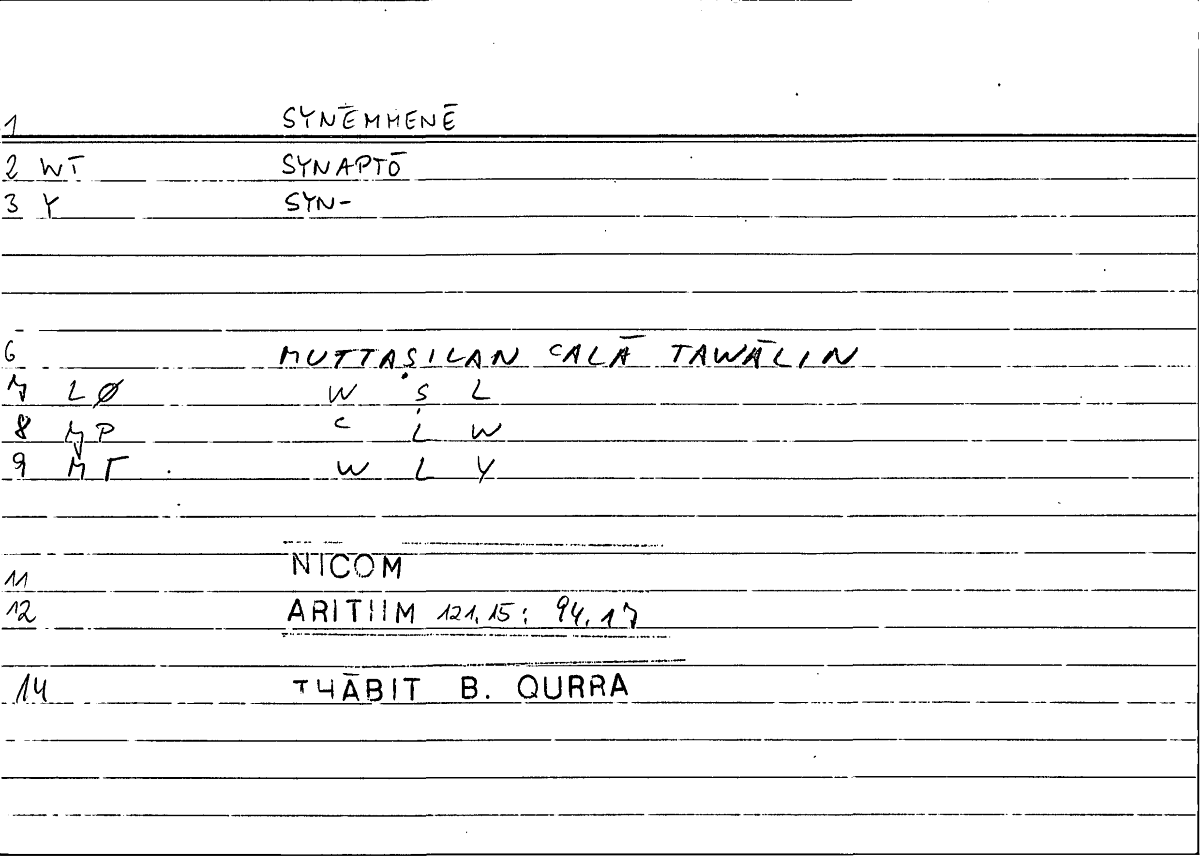 1 SYNĒMMENĒ
2 WT SYNAPTŌ
3 Y SYN-
6 MUTTAṢILAN ᶜALĀ TAWĀLIN
7 LØ W Ṣ L
8 MP ᶜ L W
9 MT W L Y
11 NICOM
12 ARITHM 121,15: 94,17
14 THĀBIT B. QURRA